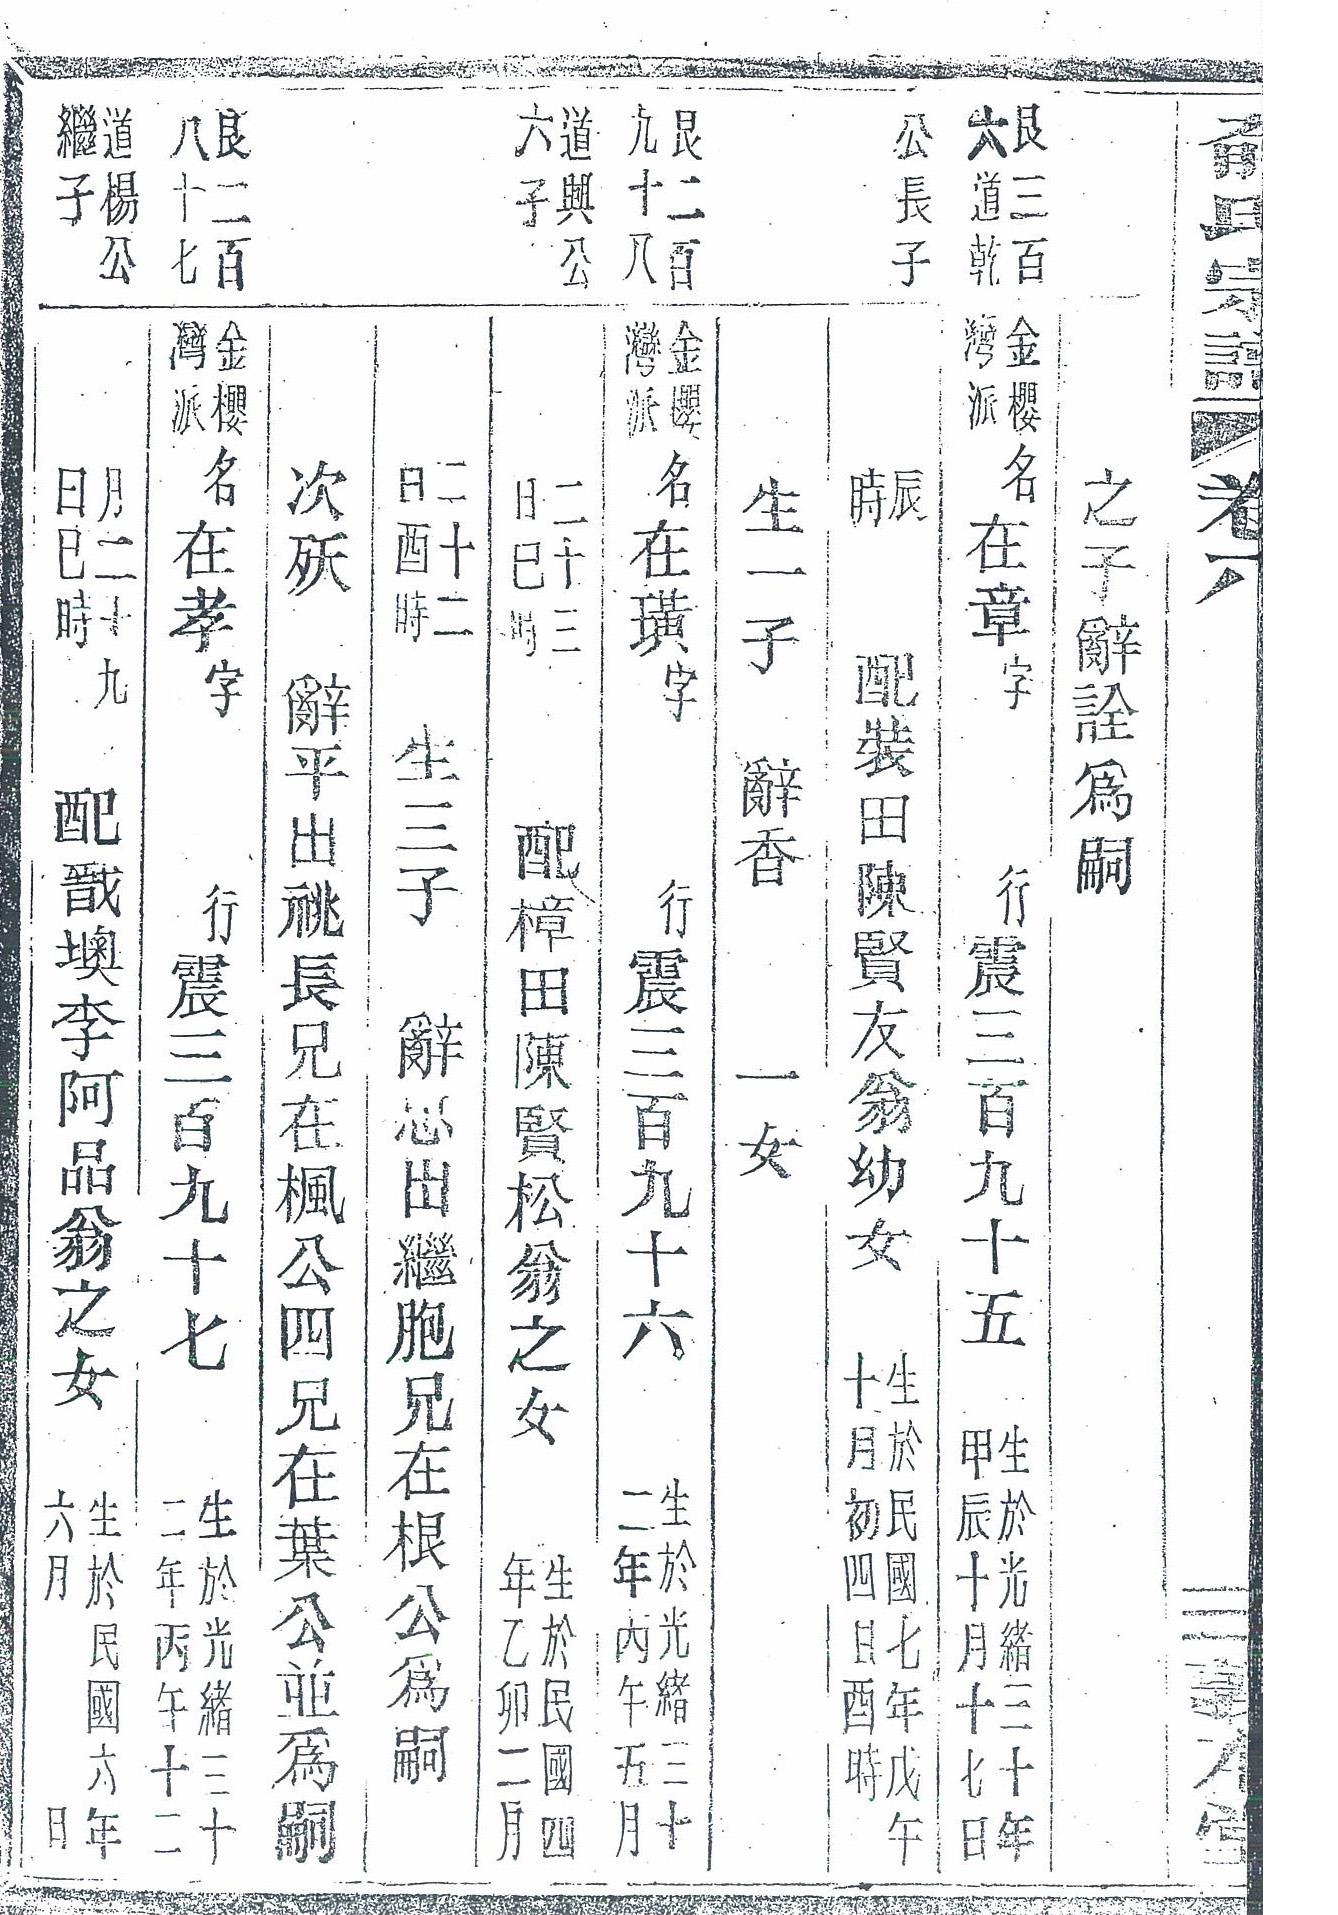 俞氏宗譜 卷六
之子辭詮爲嗣
艮三百六道乾
金櫻灣派 名在章字 行震三百九十五 生於光緒三十年甲辰十月十七日
公長子
辰時 配裝田陳賢友翁幼女 生於民國七年戊午十月初四日酉時
生一子 辭香 一女
艮二百九十八
金櫻灣派 名在璜字 行震三百九十六 生於光緒三十二年丙午五月
道興公六子
二十三日巳時 配樟田陳賢松翁之女 生於民國四年乙卯二月
二十二日酉時 生三子 辭忎出繼胞兄在根公爲嗣
次殀 辭平出祧長兄在楓公四兄在葉公並爲嗣
艮二百八十七
金櫻灣派 名在孝字 行震三百九十七 生於光緒三十二年丙午十二
道楊公繼子
月二十九日巳時 配戬墺李阿品翁之女 生於民國六年六月 日